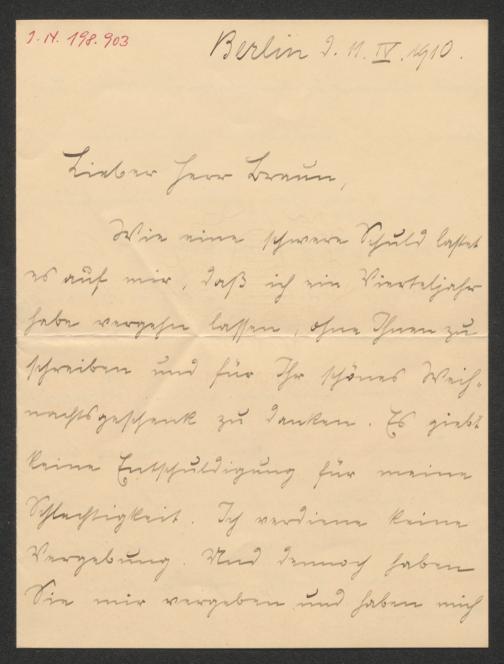 I.N. 198.903
Berlin d. 11. IV. 1910.
Lieber Herr Braun,
Wie eine schwere Schuld lastet
es auf mir, daß ich ein Vierteljahr
habe vergehn lassen, ohne Ihnen zu
schreiben und für Ihr schönes Weih-
nachtsgeschenk zu danken. Es giebt
keine Entschuldigung für meine
Schlechtigkeit. Ich verdiene keine
Vergebung. Und dennoch haben
Sie mir vergeben und haben mich